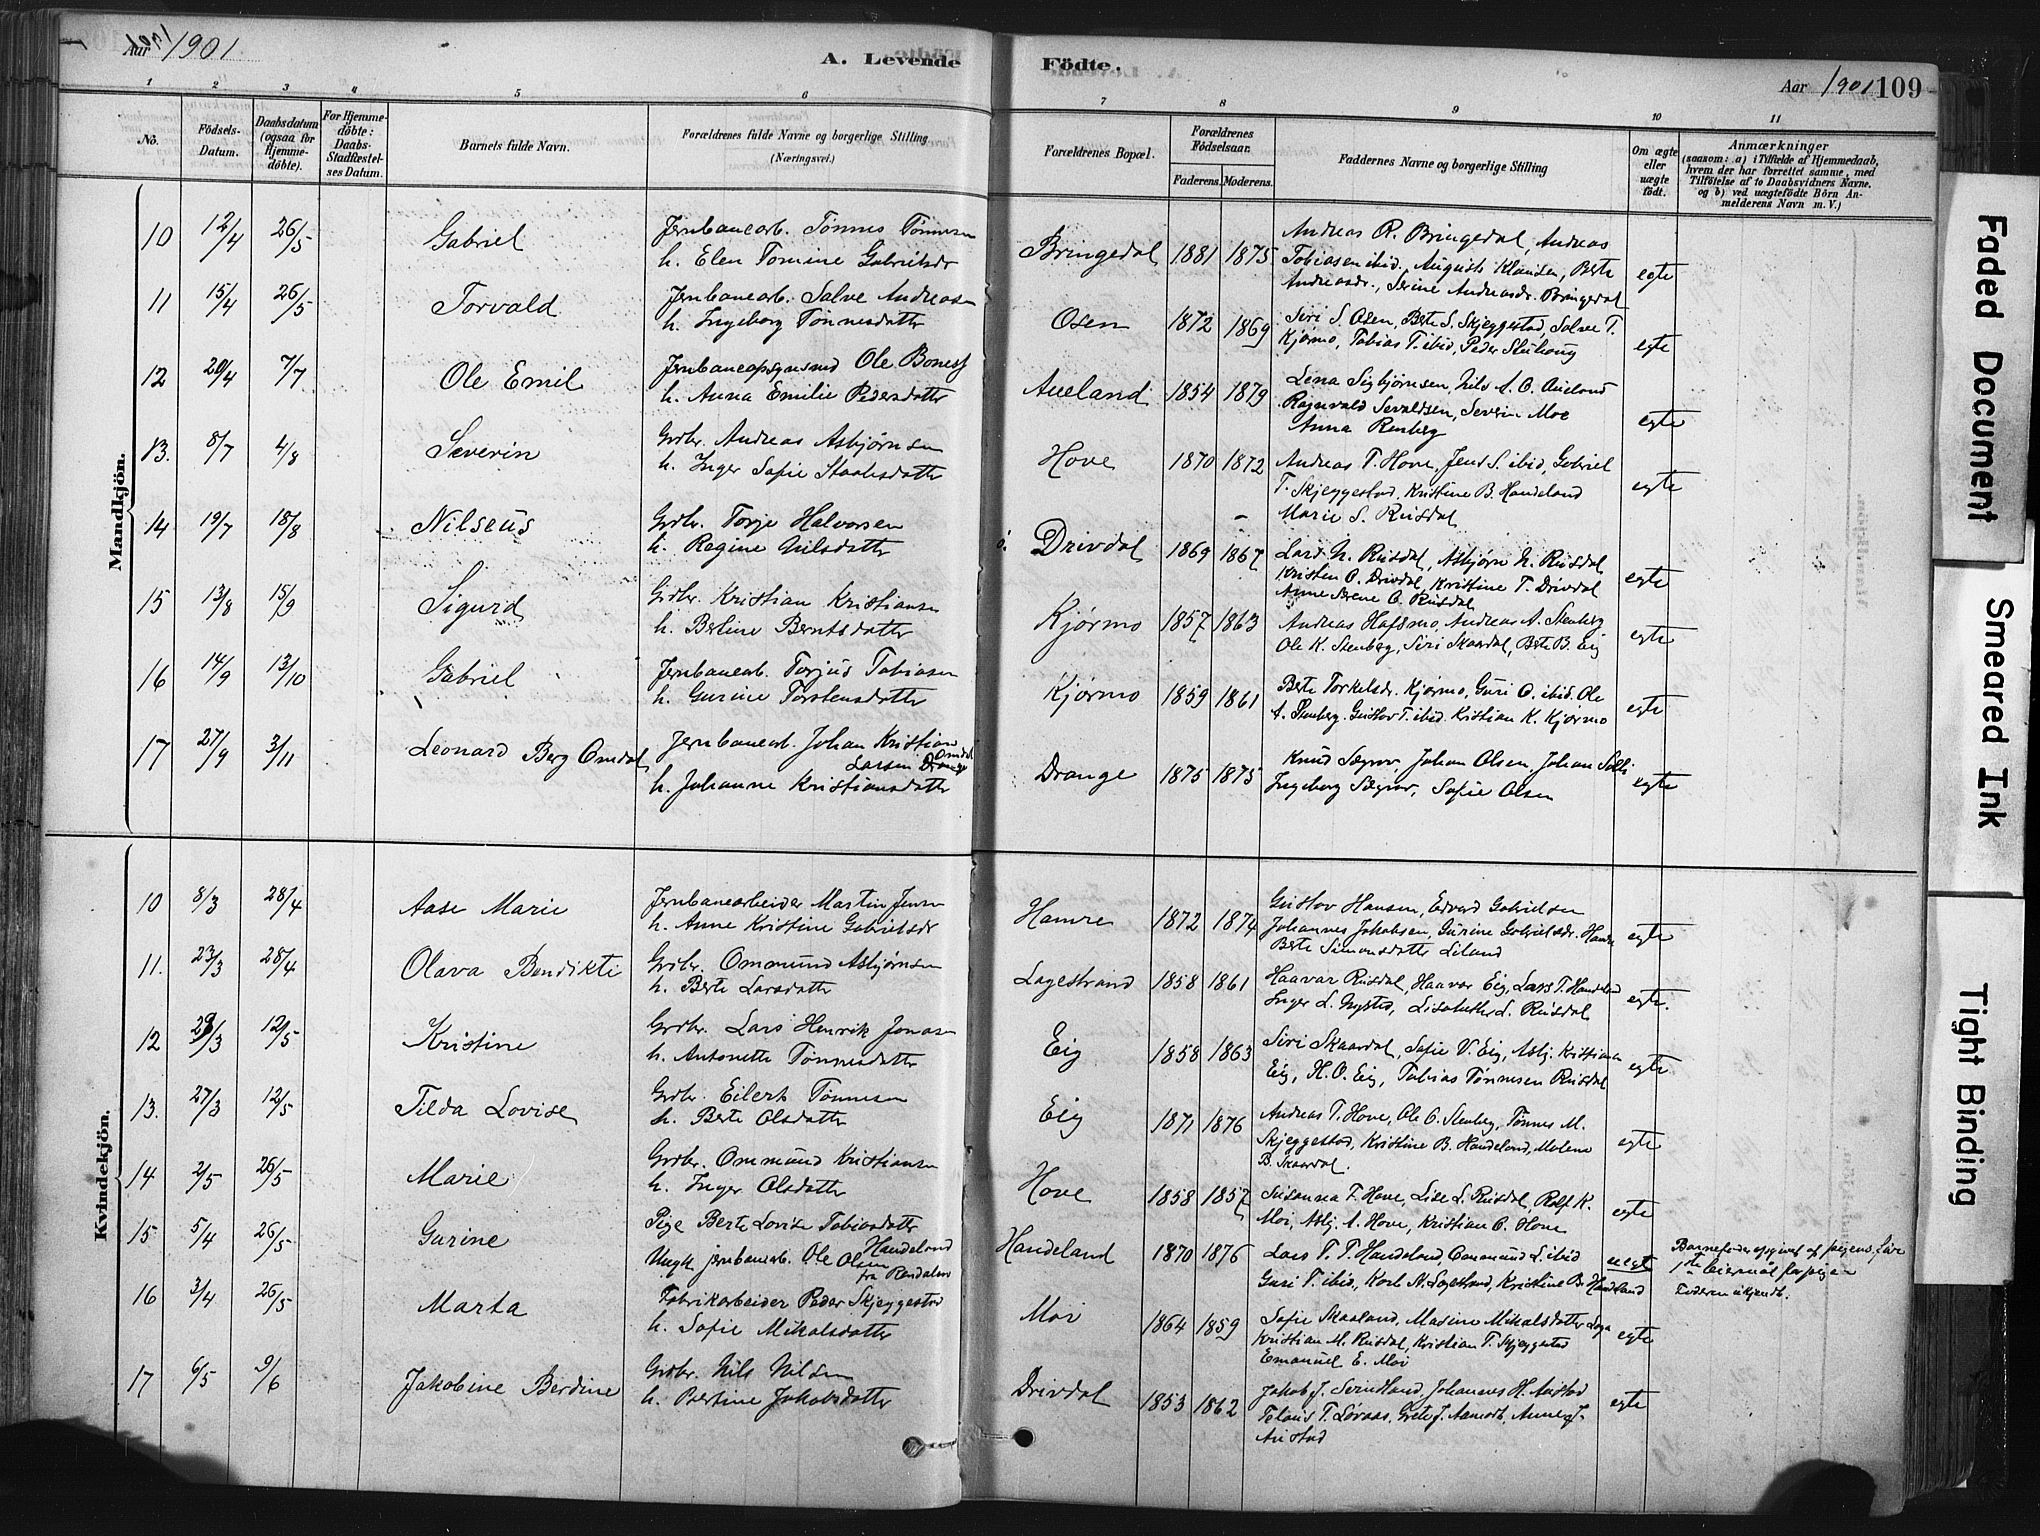 Aar 1901
A. Levende
Födte.
Aar 1901 109
1 2 3 4 5 6
7 8 9 10 11
No.
Födsels-
Datum.
Daabsdatum
(ogsaa for
Hjemme-
döbte).
For Hjemme-
döbte:
Daabs-
Stadfæstel-
ses Datum.
Barnets fulde Navn.
Forældrenes fulde Navne og borgerlige Stilling
(Næringsvei.)
Forældrenes Bopæl.
Forældrenes
Födselsaar.
Faderens. Moderens.
Faddernes Navne og borgerlige Stilling
Om ægte
eller
uægte
födt.
Anmærkninger
(saasom: a) i Tilfælde af Hjemmedaab,
hvem der har forrettet samme, med
Tilföielse af to Daabsvidners Navne,
og b) ved uægtefödte Börn An-
melderens Navn m. V.)
Mandkjön.
10 12/4 26/5 Gabriel
Jernbanearb. Tönnes Tönnesen
h. Elen Tomine Gabrielsdr
Bringedal 1881 1875
Andreas R. Bringedal, Andreas
Tobiasen ibid., August Klausen, Berte
Andreasdr., Serine Andreasdr. Bringedal
egte
11 15/4 26/5 Torvald
Jernbanearb. Salve Andreasen
h. Ingeborg Tönnesdatter
Osen 1872 1869
Siri S. Osen, Berte S. Skjeggestad, Salve T.
Kjørmo, Tobias T. ibid, Peder
egte
12 20/4 7/7 Ole Emil
Ole
h. Anna Emilie Pedersdatter
Aueland 1854 1879
Lena Sigbjørnsen, Nils A. O. Aueland
Ragnvald Sevaldsen, Severin Moe
Anna Renberg
egte
13. 8/7 4/8 Severin
Grdbr. Andreas Asbjørnsen
h. Inger Sofie
Hove 1870 1872
Andreas T. Hove, Jens S. ibid, Gabriel
T. Skjeggestad, Kristine B. Handeland
Marie S. Rusdal
egte
14 19/7 18/8 Nilseus
Grdbr. Torje Halvorsen
h. Regine Nilsdatter
Drivdal 1869 1867
Lars N. Rusdal, Asbjørn N. Rusdal
Kristen O. Drivdal, Kristine T. Drivdal
Anne Serene O. Rusdal
egte
15 13/8 15/9 Sigurd
Grdbr. Kristian Kristiansen
h. Berline Berntsdatter
Kjørmo 1857 1863
Andreas Hafsmo, Andreas A. Stenberg
Ole K. Stenberg, Siri Skaardal, Berte B. Eig
egte
16 14/9 13/10 Gabriel
Jernbanearb. Torjus Tobiasen
h. Gurine Torstensdatter
Kjørmo 1859 1861
Berte Torkelsdr. Kjørmo, Guri O. ibid. Ole
A. Stenberg. Gustov T. ibid. Kristian K. Kjørmo
egte
17 27/9 3/11 Leonard Berg Omdal
Jernbanearb. Johan Kristian
Larsen Omdal
h. Johanne Kristiansdatter
Drange 1875 1875
Knud Sægrov, Johan Olsen, Johan
Ingeborg Sægrov, Sofie Olsen
egte
Kvindekjön.
10 8/3 28/4 Aase Marie
Jernbanearbeider Martin Jensen
h. Anne Kristine Gabrielsdr
Hamre 1872 1874
Gustov Hansen, Edvard Gabrielsen
Johannes Jakobsen, Gurine Gabrielsdr. Hamre
Berte Simonsdatter Liland
egte
11. 23/3 28/4 Olava Bendikte
Grdbr. Ommund Asbjørnsen
h. Berte Larsdatter
Lagestrand 1858 1861
Haavar Rusdal, Haavar Eig, Lars T. Handeland
Inger L. Lisabeth L. Rusdal
egte.
12 29/3 12/5 Kristine
Grdbr. Lars Henrik Jonasen
h. Antonette Tönnesdatter
Eig 1858 1863
Siri Skaardal, Sofie V. Eig, Asbj. Kristiansen
Eig, H. O. Eig, Tobias Tönnesen Rusdal
egte
13. 27/3 12/5 Tilda Lovise
Grdbr. Eilert Tönnesen
h. Berte Olsdatter
Eig 1871 1876
Andreas T. Hove, Ole O. Stenberg, Tønnes M.
Skjeggestad, Kristine B. Handeland, Malene
B. Skaardal.
egte
14 2/5 26/5 Marie
Grdbr. Ommund Kristiansen
h. Inger Olsdatter
Hove 1858 1857
Susanna T. Hove, Lise L. Rusdal, Rolf K.
Moi, Asbj. A. Hove, Kristian O. Hove
egte
15 5/4 26/5 Gurine
Pige Berte Lovise Tobiasdatter
Handeland
Ungk. jernbanearb. Ole Olsen
fra Rendalen
Handeland 1870 1876
Lars T. T. Handeland, Ommund L. ibid
Guri T. ibid, Karl N. Lagestrand, Kristine B. Handeland
uegte
Barnefader opgivet af pigens far
1ste leiermaal for pigen
Faderen ukjendt.
16 3/4 26/5 Marta
Fabrikarbeider Peder Skjeggestad
h. Sofie Mikalsdatter
Moi 1864 1859
Sofie Skaaland, Masine Mikalsdatter Loga
Kristian M. Rusdal, Kristian T. Skjeggestad
Emanuel E. Moi
egte
17 6/5 9/6 Jakobine Berdine
Grdbr. Nils Nilsen
h. Bertine Jakobsdatter
Drivdal 1853 1862
Jakob J. Johannes H. Austad
T. Grete J. Aamodt, Anne J.
Austad
egte
Faded Document
Smeared Ink
Tight Binding